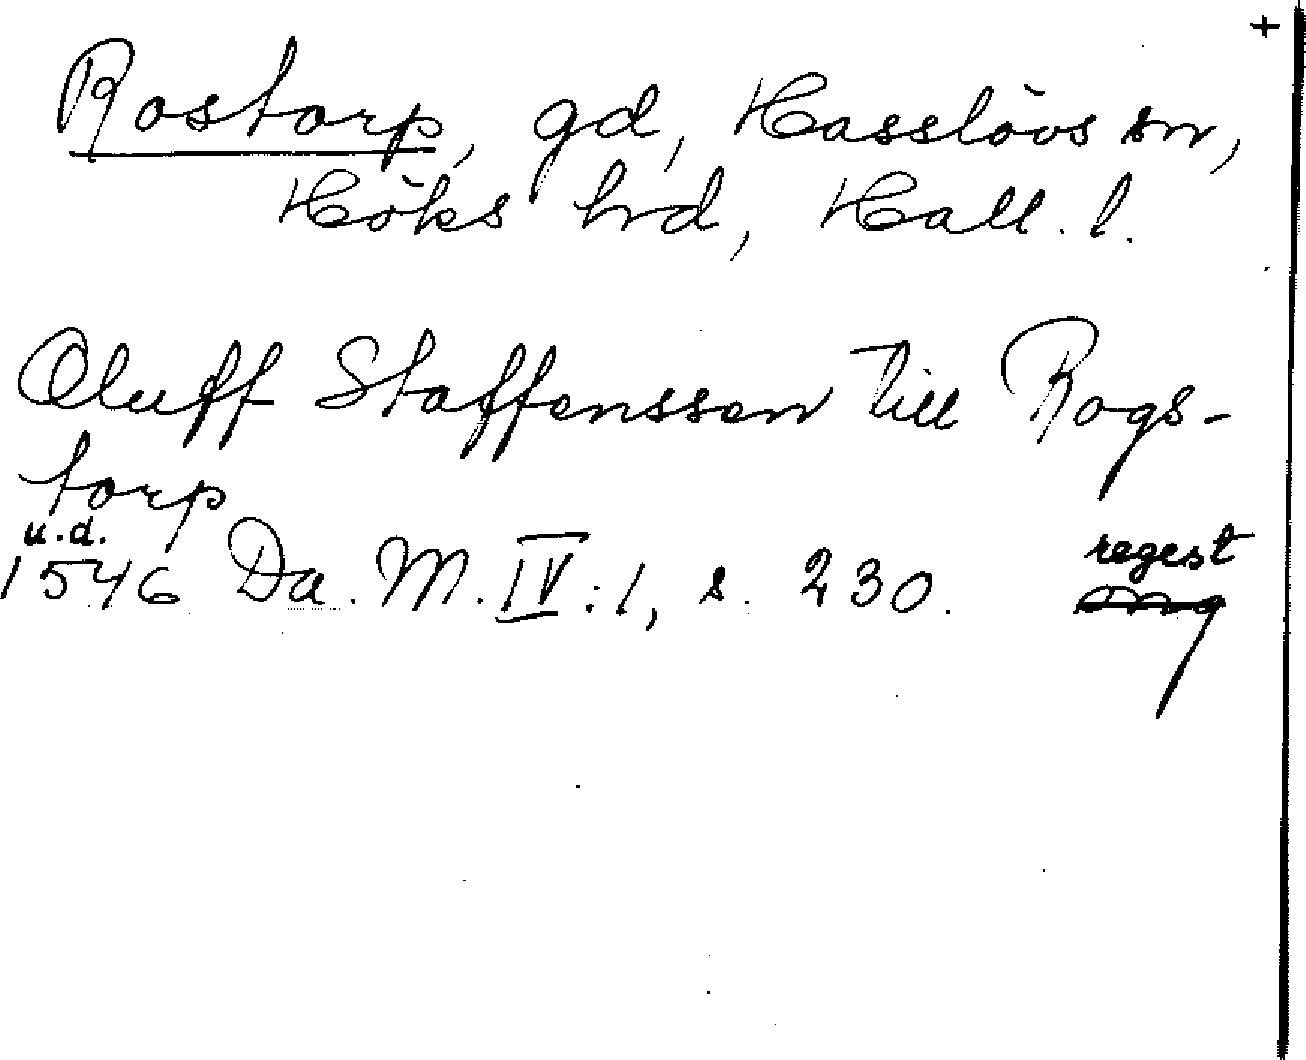 +
Rostorp, gd, Hasslövs sn,
Höks hrd, Hall. l.
Oluff Staffenssen till Rogs-
torp
u.d.
1546 Da. M. IV:1, s. 230. regest